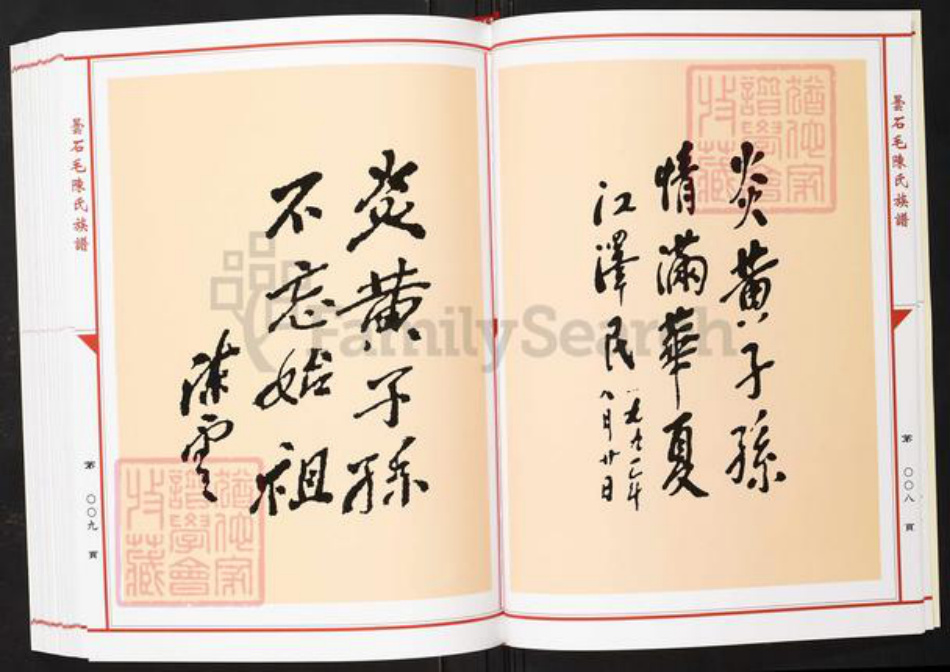 曇石毛陳氏族譜
第〇〇八頁
炎黄子孫
情滿華夏
江澤民
一九九一年
八月廿日
猶他家
譜學會
收藏
曇石毛陳氏族譜
第〇〇九頁
炎黄子孫
不忘始祖
陳雲
猶他家
譜學會
收藏
FamilySearch